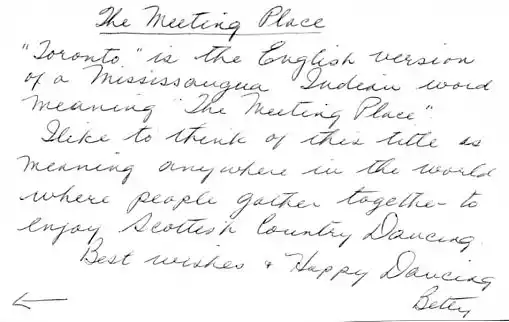 The Meeting Place
"Toronto" is the English version
of a Mississaugua Indian word
meaning "The Meeting Place".
I like to think of this title as
meaning anywhere in the world
where people gather together to
enjoy Scottish Country Dancing.
Best wishes & Happy Dancing
Betty